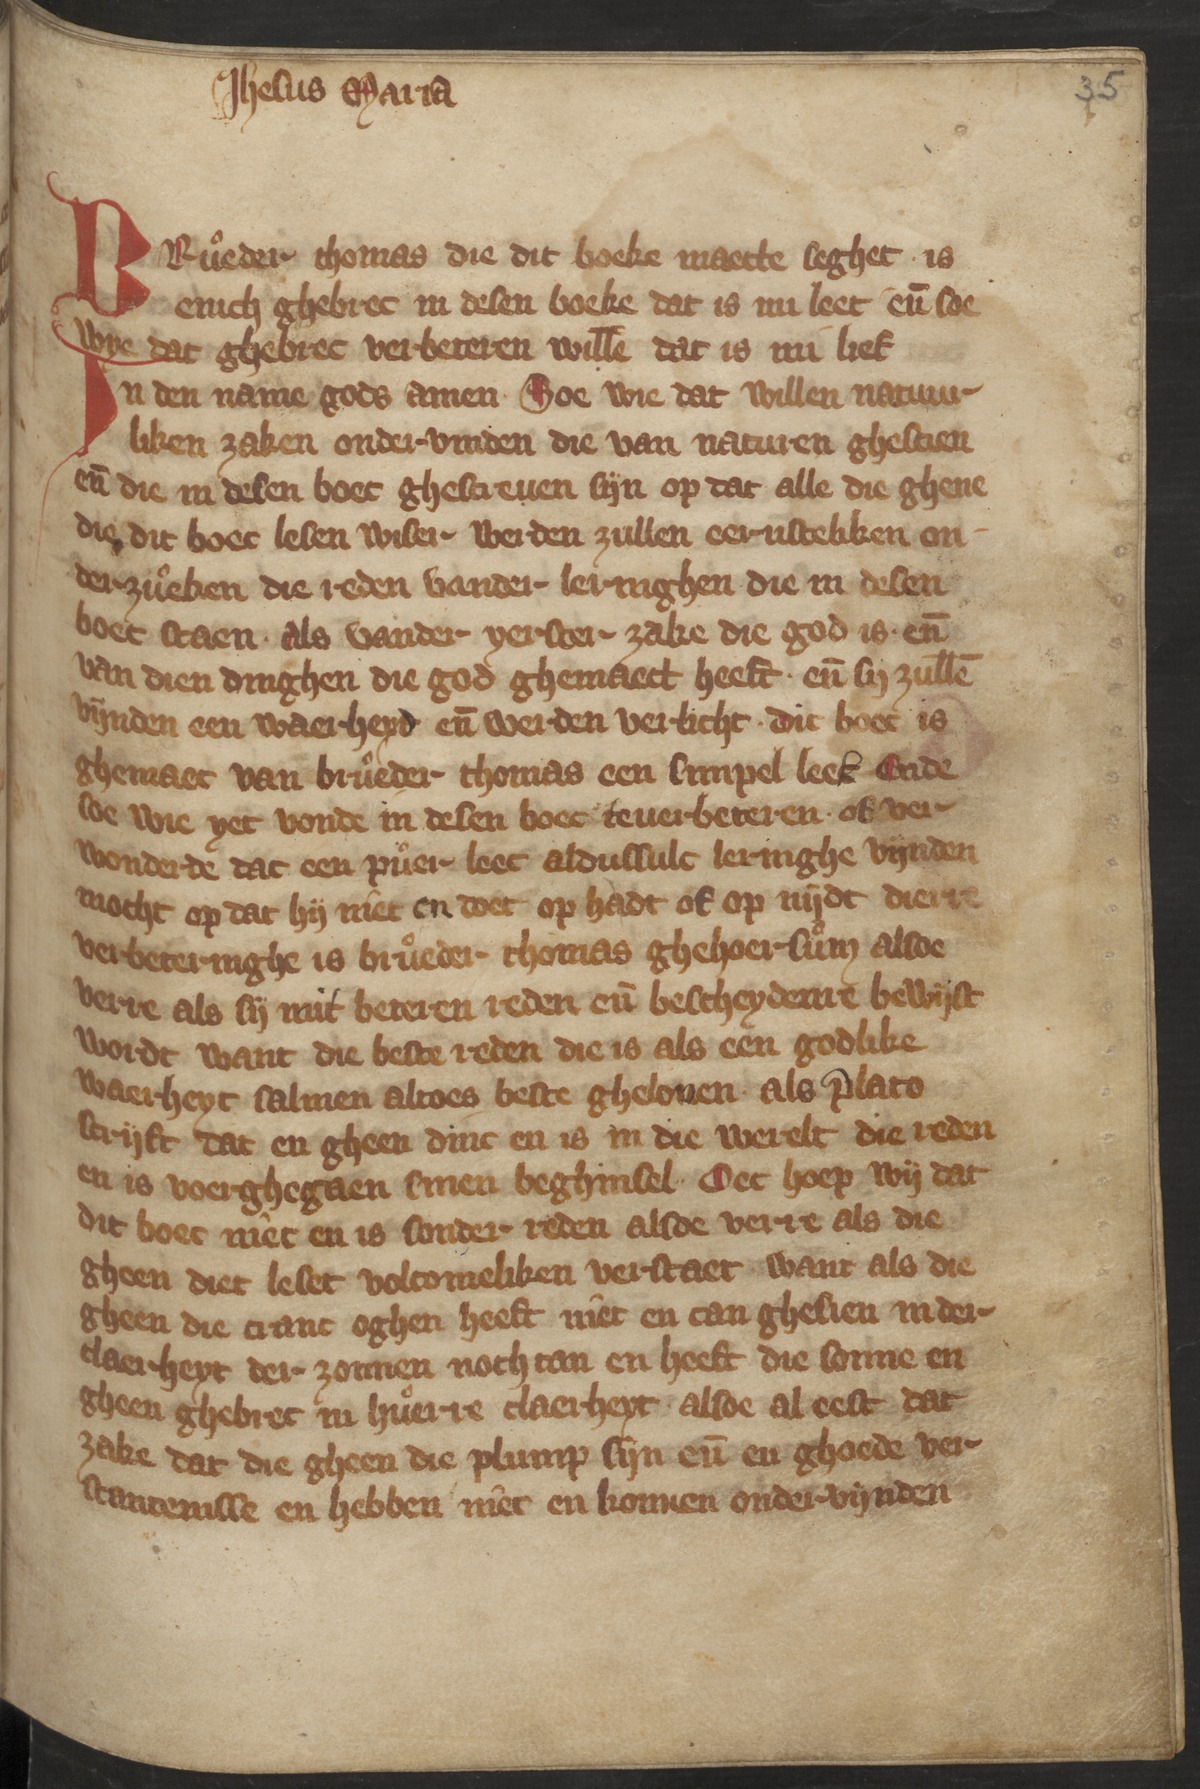 Jhesus Maria
35
BRuͦeder thomas die dit boeke maecte seghet · is
enich ghebrec in desen boeke dat is mi leet en̄ soe
wye dat ghebrec verbeteren wille dat is mi lief
In den name gods amen · Soe wie dat willen natuur-
liken zaken ondervinden die van naturen ghescien
en̄ die in desen boec ghescreuen sijn op dat alle die ghene
die dit boec lesen wiser werden zullen eernstelikken on-
derzuͦeken die reden vander leringhen die in desen
boec staen · als vander yerster zake die god is · en̄
van dien dinghen die god ghemaect heeft · en̄ sij zullē
vijnden een waerheyd en̄ werden verlicht · dit boec is
ghemaec van bruͦeder thomas een simpel leek Ende
soe wie yet vonde in desen boec teuerbeteren · of ver-
wonderde dat een puͦer leec aldussulc leringhe vijnden
mocht op dat hij niet en doet op hadt of op nijdt dierre
verbeteringhe is bruͦeder thomas ghehoersuͦm alsoe
verre als sij mit beteren reden en̄ bescheydenre bewijst
wordt want die beste reden die is als een godlike
waerheyt salmen altoes beste ghelouen · als Plato
scrijft dat en gheen dinc en is in die werelt die reden
en is voerghegaen sinen beghinsel · Oec hoep wij dat
dit boec niet en is sonder reden alsoe verre als die
gheen diet leset volcomeliken verstaet want als die
gheen die cranc oghen heeft niet en can ghesien in der
claerheyt der zonnen nochtan en heeft die sonne en
gheen ghebrec in huͦerre claerheyt · alsoe al eest dat
zake dat die gheen die plump sijn en̄ en ghoede ver-
stantenisse en hebben niet en konnen ondervijnden